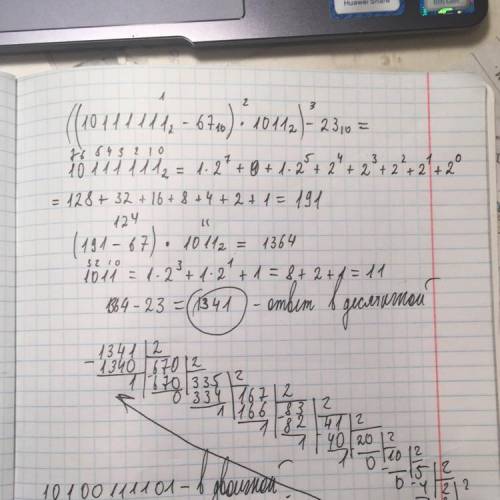 Huawei Share
1 2 3
((10111111₂ − 67₁₀) · 1011₂) − 23₁₀ =
7 6 5 4 3 2 1 0
10111111₂ = 1·2⁷ + 0 + 1·2⁵ + 2⁴ + 2³ + 2² + 2¹ + 2⁰
= 128 + 32 + 16 + 8 + 4 + 2 + 1 = 191
124 11
(191 − 67) · 1011₂ = 1364
3 2 1 0
1011 = 1·2³ + 1·2¹ + 1 = 8 + 2 + 1 = 11
1364 − 23 = 1341 − ответ в десятичной
1341 2
−1340 670 2
1 −670 335 2
0 334 167 2
1 166 −83 2
1 82 41 2
1 40 20 2
1 0 10 2
0 5 2
4 2 2
10100111101 − в двоичной